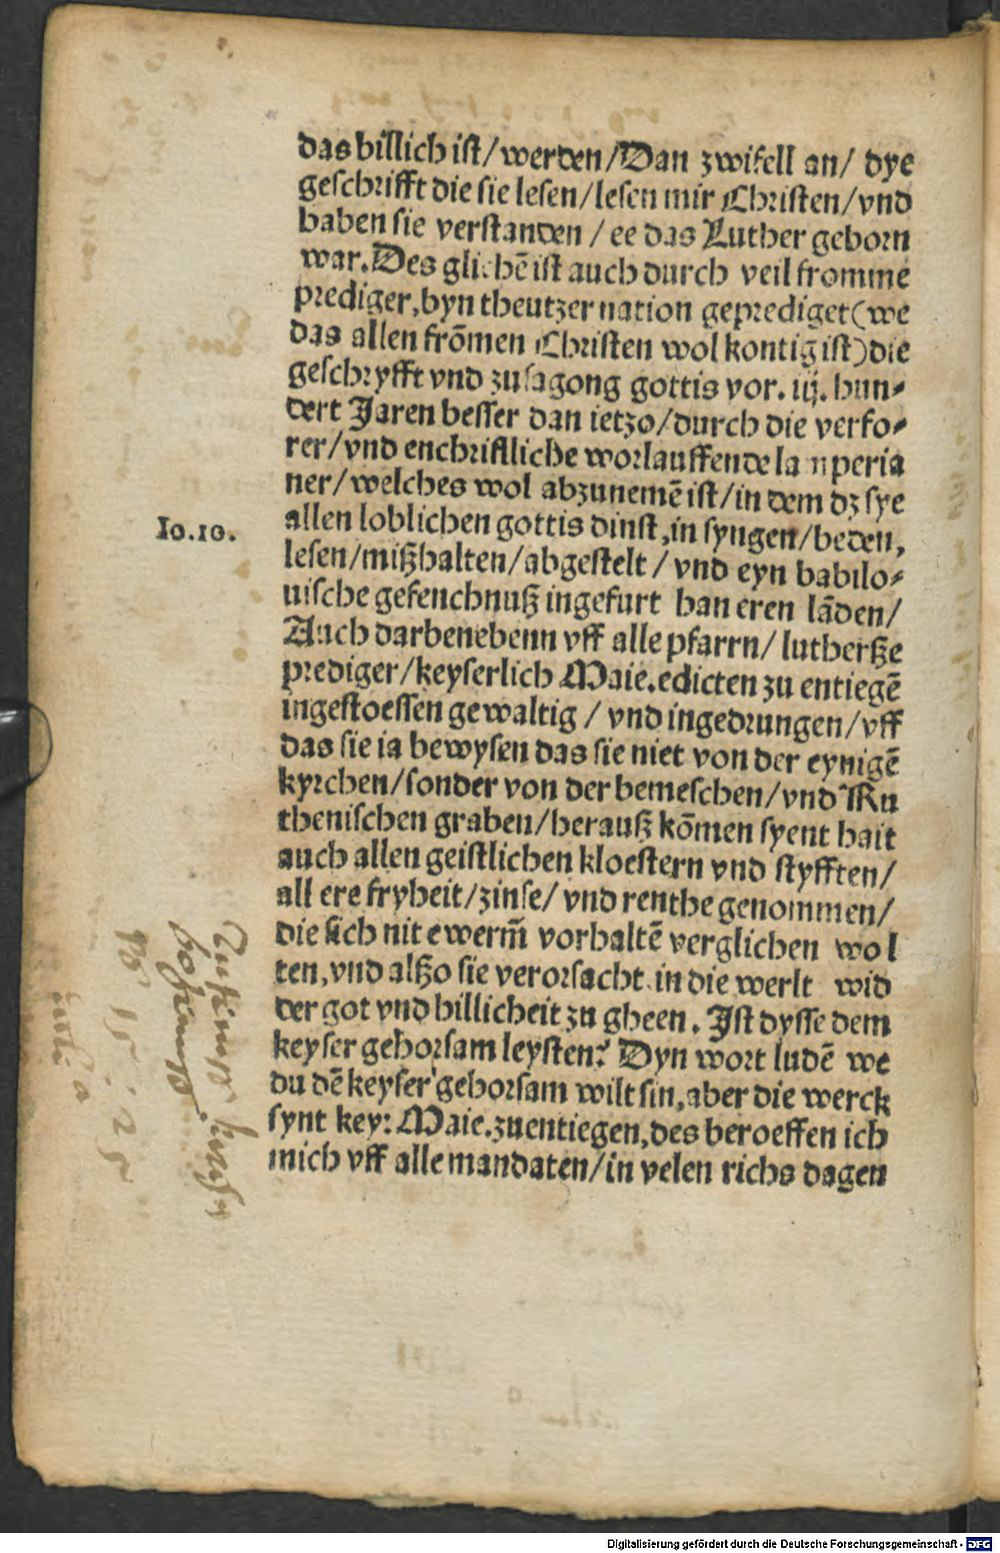 das billich ist/werden/Dan zwifell an/ dye
geschrifft die sie lesen/lesen mir Christen/vnd
haben sie verstanden / ee das Luther geborn
war. Des glichē ist auch durch veil fromme
prediger, hyn theutzer nation geprediget (we
das allen frōmen Christen wol kontig ist) die
geschryfft vnd zusagong gottis vor. iij. hun⸗
dert Jaren besser dan ietzo/durch die verfo⸗
rer/vnd enchristliche worlauffende la nperia
ner/welches wol abzunemē ist/in dem dz sye
allen loblichen gottis dinst, in syngen/beden,
Io.10.
lesen/mißhalten/abgestelt / vnd eyn babilo⸗
nische gefenchnuß ingefurt han eren lāden/
Auch darbenebenn vff alle pfarrn/ lutherße
prediger/keyserlich Maie. edicten zu entiegē
ingestoessen gewaltig / vnd ingedrungen/vff
das sie ia bewysen das sie niet von der eynigē
kyrchen/sonder von der bemeschen/vnd Ru
thenischen graben/herauß kōmen syent hait
auch allen geistlichen kloestern vnd styfften/
all ere fryheit/zinse/ vnd renthe genommen/
die sich nit ewerm̄ vorhaltē verglichen wol
ten, vnd alßo sie verorsacht in die werlt wid
der got vnd billicheit zu gheen. Ist dysse dem
keyser gehorsam leysten? Dyn wort ludē we
du dē keyser gehorsam wilt sin, aber die werck
synt key: Maie. zuentiegen, des beroeffen ich
mich vff alle mandaten/in velen richs dagen
15 25
Digitalisierung gefördert durch die Deutsche Forschungsgemeinschaft - DFG